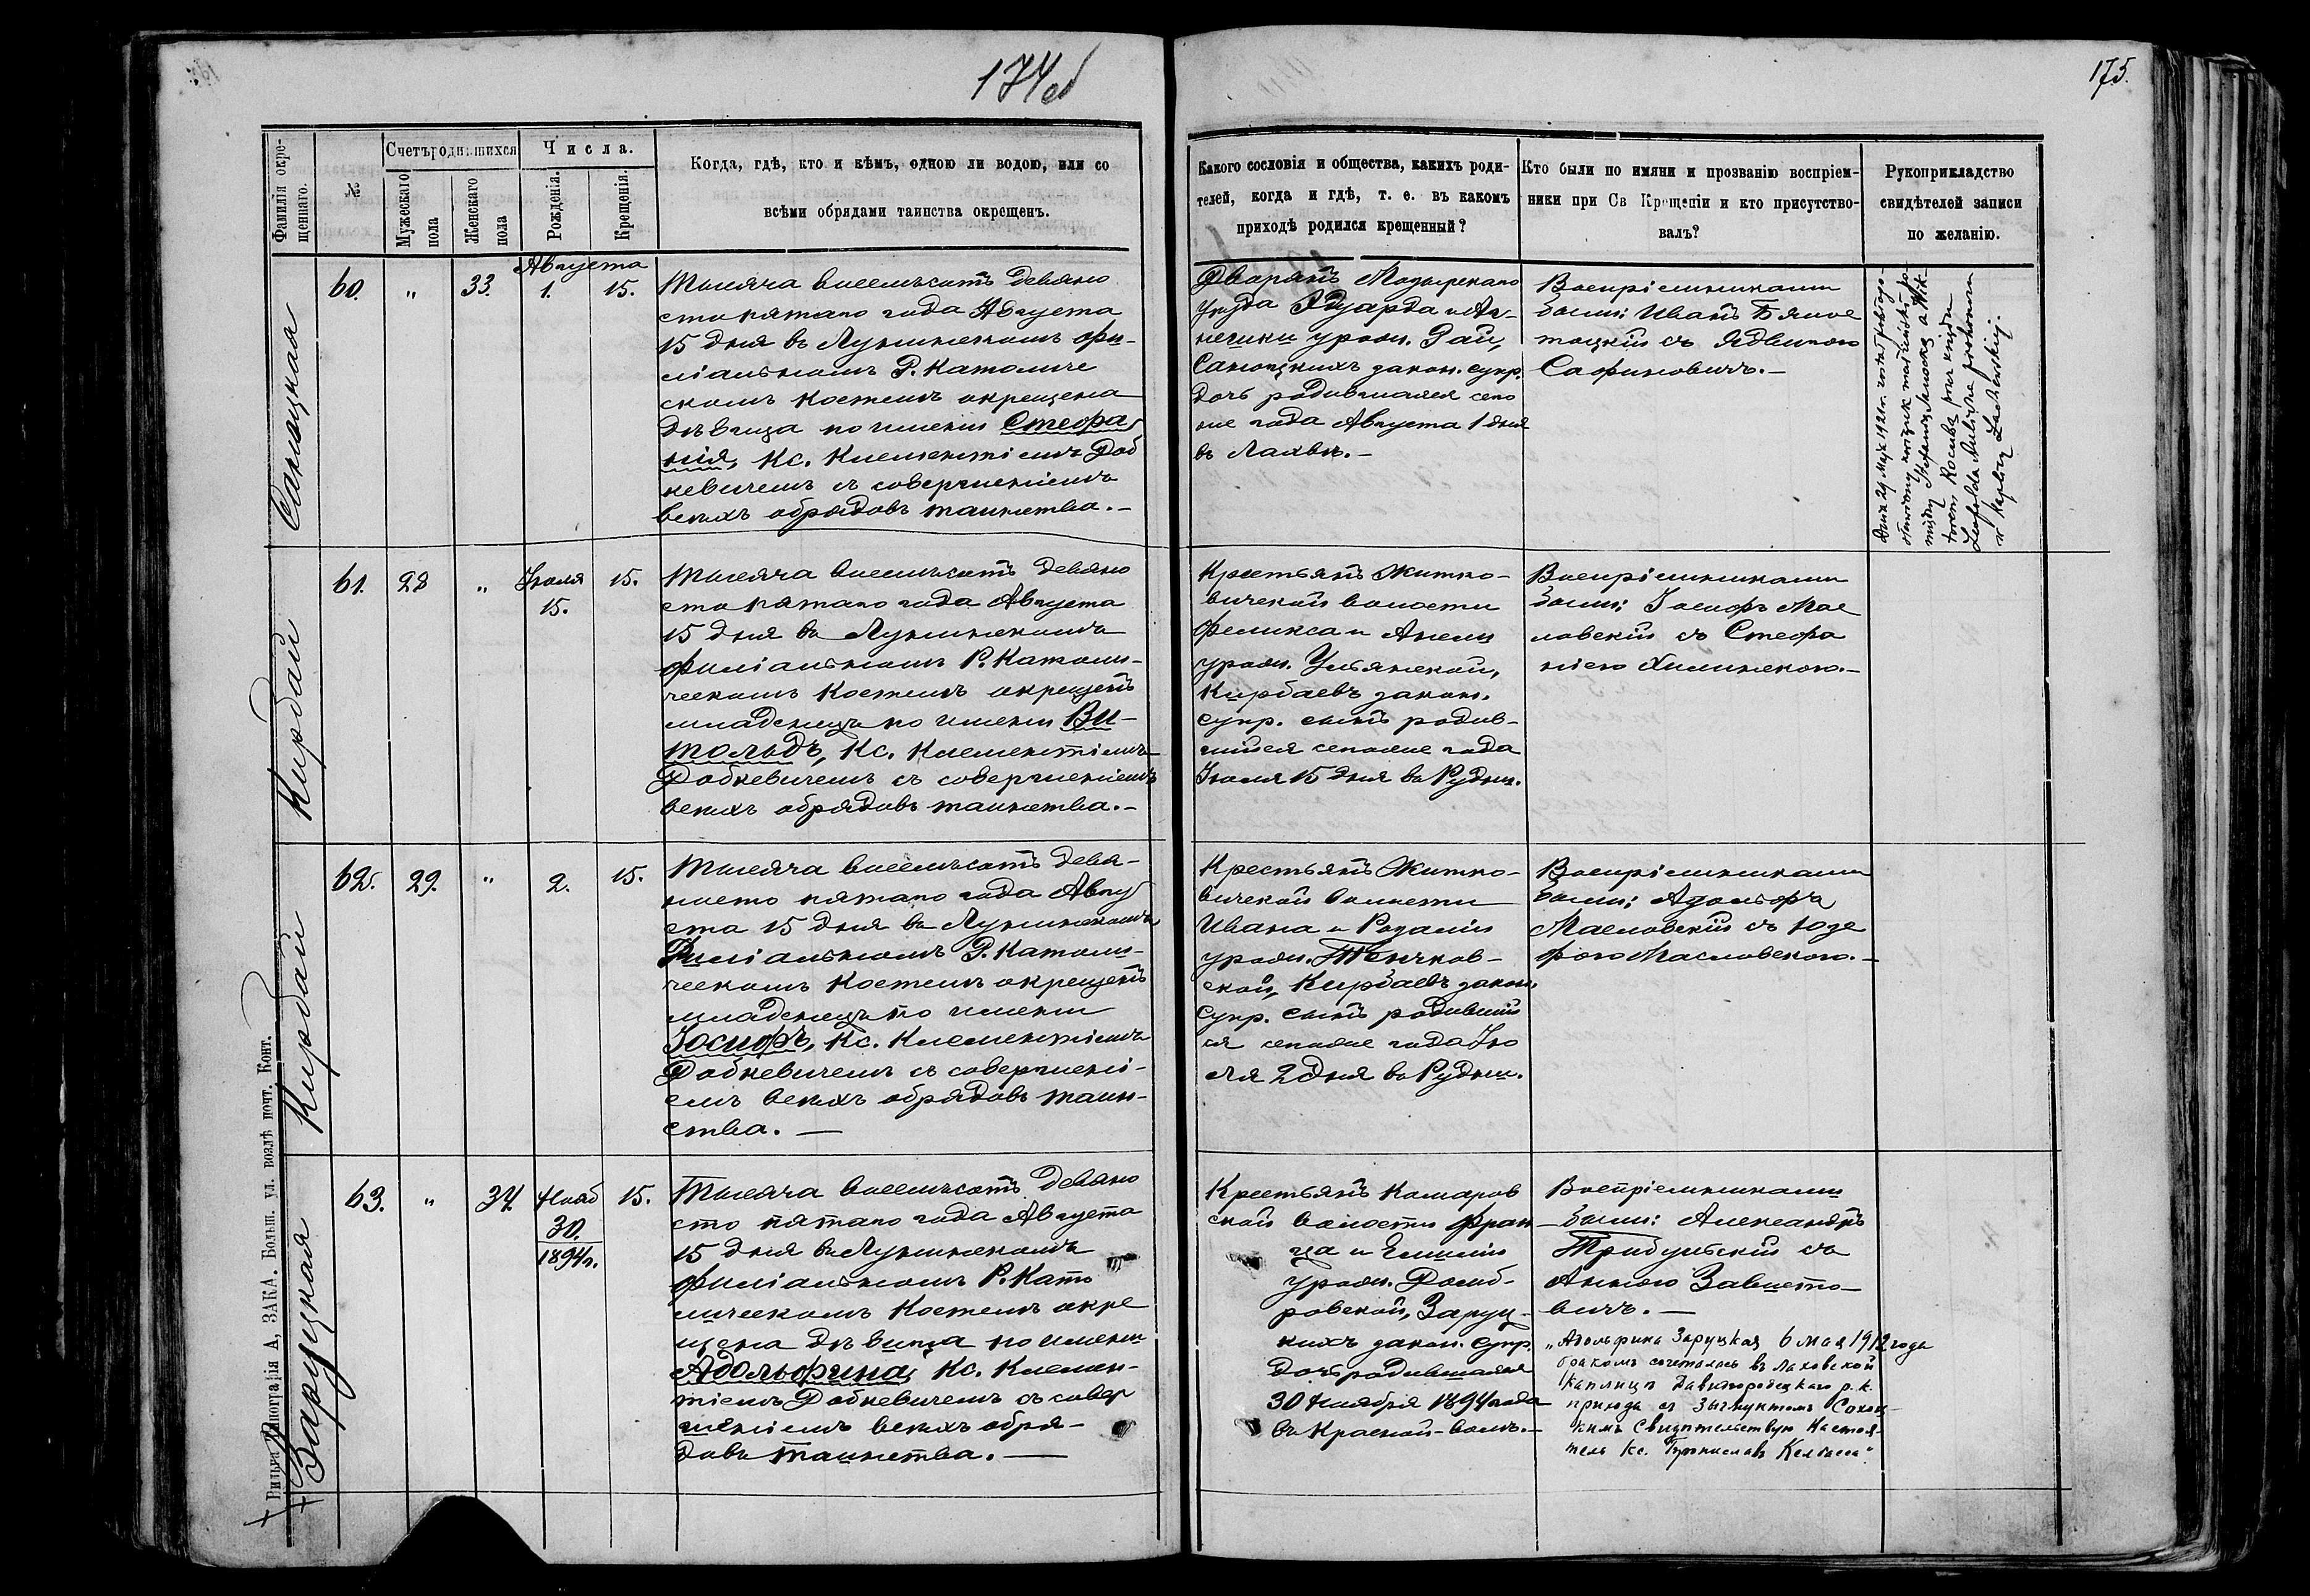 174об
175.
Фамилія окре-
щеннаго.
№
Счетъ родившихся
Мужескаго
пола
Женскаго
пола
Числа.
Рожденія.
Крещенія.
Когда, гдѣ, кто и кѣмъ, одною ли водою, или со
всѣми обрядами таинства окрещенъ.
Какого сословія и общества, какихъ роди-
телей, когда и гдѣ, т. е. въ какомъ
приходѣ родился крещенный?
Кто были по имяни и прозванію воспріем-
ники при Св Крещеніи и кто присутство-
валъ?
Рукоприкладство
свидѣтелей записи
по желанію.
Саноцкая
60.
"
33.
Августа
1.
15.
Тысяча восемьсотъ девяно
сто пятаго года Августа
15 дня въ Лунинскомъ фи-
ліальномъ Р. Католиче
скомъ костелѣ окрещена
дѣвица по имени Стефа
нія, Кс. Клементіемъ Доб
кевичемъ съ совершеніемъ
всѣхъ обрядовъ таинства.-
Дворянъ Мозырскаго
уѣзда Эдуарда и Аг-
нешки урожд. Гай,
Саноцкихъ закон. супр.
дочь родившаяся сего
же года Августа 1 дня
въ Лахвѣ.-
Воспріемниками
были: Иванъ Бялое
тоцкій съ Ядвигою
Сафиновичъ.-
Dnia 29 Maja 1921 r. został pobłogo-
sławiony związek małżeński po-
między Stefanją Sanocką a Wik-
torem Kosubą przez księdza
Leopolda Aulicha proboszcza
w kaplicy Lachewskiej.
Кирбай
61.
28
"
Іюля
15.
15.
Тысяча восемьсотъ девяно
сто пятаго года Августа
15 дня въ Лунинскомъ
филіальномъ Р. Католи-
ческомъ костелѣ окрещенъ
младенецъ по имени Ви-
тольдъ, Кс. Клементіемъ
Добкевичемъ съ совершеніемъ
всѣхъ обрядовъ таинства.-
Крестьянъ Житко-
вичской волости
Феликса и Анели
урожд. Ульянской,
Кирбаевъ закон.
супр. сынъ родив-
шійся сего же года
Іюля 15 дня въ Рудни.
Воспріемниками
были: Іосифъ Мас
ловскій съ Стефа
ніею Хилинскою.-
Кирбай
62.
29.
"
2.
15.
Тысяча восемьсотъ девя-
носто пятаго года Авгу
ста 15 дня въ Лунинскомъ
Филіальномъ Р. Католи-
ческомъ костелѣ окрещенъ
младенецъ по имени
Іосифъ, Кс. Клементіемъ
Добкевичемъ съ совершені-
емъ всѣхъ обрядовъ таин-
ства.-
Крестьянъ Житко-
вичской волости
Ивана и Розаліи
урожд. Тенчков-
ской, Кирбаевъ закон.
супр. сынъ родившій
ся сего же года Ію
ля 2 дня въ Рудни.
Воспріемниками
были: Адольфъ
Масловскій съ Юзе
фою Масловскою.-
Заруцкая
63.
"
34.
Нояб
30.
1894 г.
15.
Тысяча восемьсотъ девяно
сто пятаго года Августа
15 дня въ Лунинскомъ
филіальномъ Р. Като
лическомъ костелѣ окре
щена дѣвица по имени
Адольфина, Кс. Клемен-
тіемъ Добкевичемъ съ совер
шеніемъ всѣхъ обря-
довъ таинства.-
Крестьянъ Комаров
ской волости Фран
ца и Емиліи
урожд. Домб-
ровской, Заруц-
кихъ закон. супр.
дочь родившаяся
30 Ноября 1894 года
въ Красной-волѣ.-
Воспріемниками
были: Александръ
Трибульскій съ
Анною Зависто-
вичъ.-
„Адольфина Заруцкая 6 мая 1912 года
бракомъ сочеталась въ Лаховской
каплицѣ Давидгородецкаго р. к.
прихода съ Зыгмунтомъ Саноц-
кимъ Свидѣтельствую Настоя-
тель Кс. Брониславъ Келбасса."
Вильна Типографія А, ЗАКА. Больш. ул. возлѣ почт. Конт.